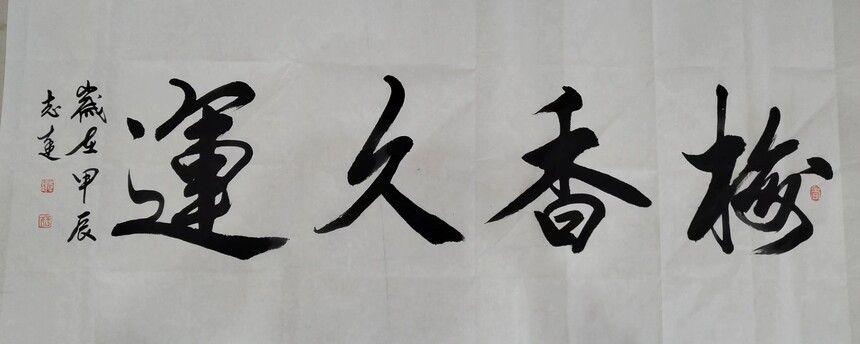 梅香久運
歲在甲辰
志達